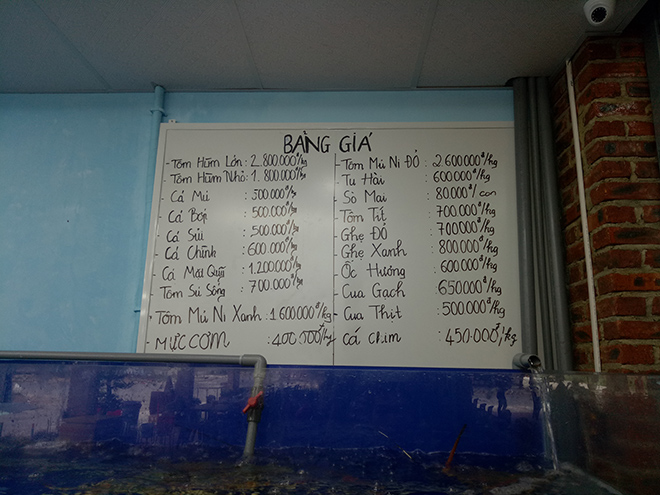 BẢNG GIÁ
- Tôm Hùm Lớn : 2.800.000đ/kg
- Tôm Hùm Nhỏ : 1.800.000đ/kg
- Cá Mú : 300.000đ/kg
- Cá Bóp : 500.000đ/kg
- Cá Sủi : 500.000đ/kg
- Cá Chình : 600.000đ/kg
- Cá Mặt Quỷ : 1.200.000đ/kg
- Tôm Sú Sống : 700.000đ/kg
- Tôm Mũ Ni Xanh : 1600000đ/kg
- MỰC CƠM : 400.000đ/kg
- Tôm Mũ Ni ĐỎ : 2600000đ/kg
- Tu Hài : 600000đ/kg
- Sò Mai : 80000đ/con
- Tôm Tít : 700.000đ/kg
- Ghẹ ĐỎ : 700000đ/kg
- Ghẹ Xanh : 800000đ/kg
- Ốc Hương : 600000đ/kg
- Cua Gạch : 650000đ/kg
- Cua Thịt : 500000đ/kg
- cá chim : 450.000đ/kg